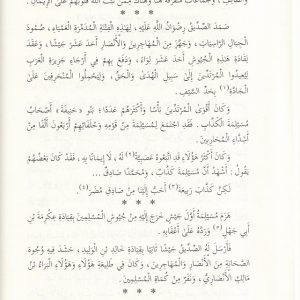 وَالطَّائِفِ، وَجَمَاعَاتٌ مُتَفَرِّقَةٌ هُنَا وَهُنَاكَ مِمَّنْ ثَبَّتَ اللَّهُ قُلُوبَهُمْ عَلَى الْإِيمَانِ.
* * *
صَمَدَ الصِّدِّيقُ رِضْوَانُ اللَّهِ عَلَيْهِ، لِهَذِهِ الْفِتْنَةِ الْمُدَمِّرَةِ الْعَمْيَاءِ، صُمُودَ
الْجِبَالِ الرَّاسِيَاتِ، وَجَهَّزَ مِنَ الْمُهَاجِرِينَ وَالْأَنْصَارِ أَحَدَ عَشَرَ جَيْشًا، وَعَقَدَ
لِقَادَةِ هَذِهِ الْجُيُوشِ أَحَدَ عَشَرَ لِوَاءً، وَدَفَعَ بِهِمْ فِي أَرْجَاءِ جَزِيرَةِ الْعَرَبِ
لِيُعِيدُوا الْمُرْتَدِّينَ إِلَى سَبِيلِ الْهُدَى وَالْحَقِّ، وَلِيَحْمِلُوا الْمُنْحَرِفِينَ عَلَى
الْجَادَّةِ(١) بِحَدِّ السَّيْفِ.
وَكَانَ أَقْوَى الْمُرْتَدِّينَ بَأْسًا وَأَكْثَرَهُمْ عَدَدًا؛ بَنُو «حَنِيفَةَ» أَصْحَابُ
مُسَيْلِمَةَ الْكَذَّابِ. فَقَدِ اجْتَمَعَ لِمُسَيْلِمَةَ مِنْ قَوْمِهِ وَحُلَفَائِهِمْ أَرْبَعُونَ أَلْفًا مِنْ
أَشِدَّاءِ الْمُحَارِبِينَ.
وَكَانَ أَكْثَرُ هَؤُلَاءِ قَدِ اتَّبَعُوهُ عَصَبِيَّةً(٢) لَهُ، لَا إِيمَانًا بِهِ، فَقَدْ كَانَ بَعْضُهُمْ
يَقُولُ: أَشْهَدُ أَنَّ مُسَيْلِمَةَ كَذَّابٌ، وَمُحَمَّدًا صَادِقٌ...
لَكِنَّ كَذَّابَ رَبِيعَةَ(٣) أَحَبُّ إِلَيْنَا مِنْ صَادِقِ مُضَرَ(٤).
هَزَمَ مُسَيْلِمَةُ أَوَّلَ جَيْشٍ خَرَجَ إِلَيْهِ مِنْ جُيُوشِ الْمُسْلِمِينَ بِقِيَادَةِ عِكْرِمَةَ بْنِ
أَبِي جَهْلٍ(٥) وَرَدَّهُ عَلَى أَعْقَابِهِ.
فَأَرْسَلَ لَهُ الصِّدِّيقُ جَيْشًا ثَانِيًا بِقِيَادَةِ خَالِدِ بْنِ الْوَلِيدِ، حَشَدَ فِيهِ وُجُوهَ
الصَّحَابَةِ مِنَ الْأَنْصَارِ وَالْمُهَاجِرِينَ، وَكَانَ فِي طَلِيعَةِ هَؤُلَاءِ وَهَؤُلَاءِ الْبَرَاءُ بْنُ
مَالِكٍ الْأَنْصَارِيُّ، وَنَفَرٌ مِنْ كُمَاةِ الْمُسْلِمِينَ.
* * *